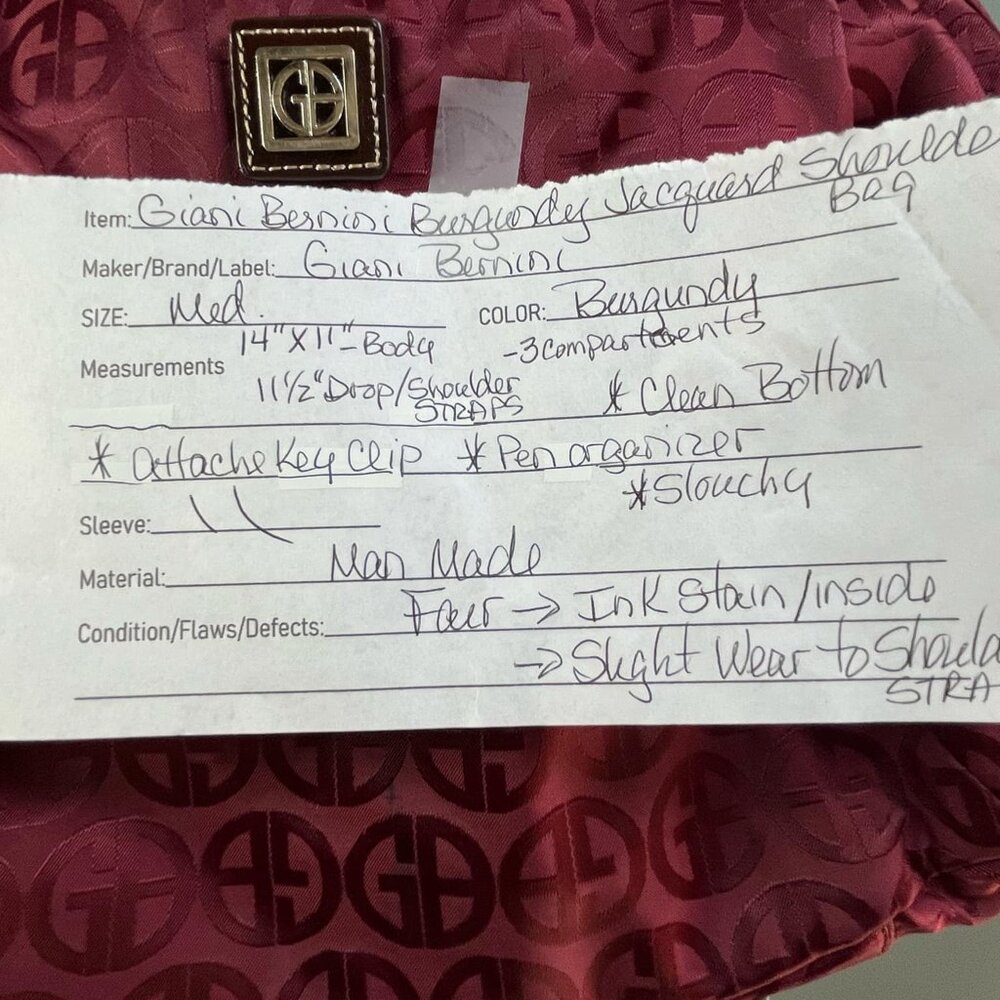 GB
Item: Giani Bernini Burgundy Jacquard Shoulde
Bag
Maker/Brand/Label: Giani Bernini
SIZE: Med. COLOR: Burgundy
14" X 11" - Body - 3 compartments
Measurements
11 1/2" Drop/Shoulder * Clean Bottom
STRAPS
* Attache Key Clip * Pen organizer
* Slouchy
Sleeve:
Material: Man Made
Condition/Flaws/Defects: Fair → Ink Stain/inside
→ Slight Wear to Should
STRA